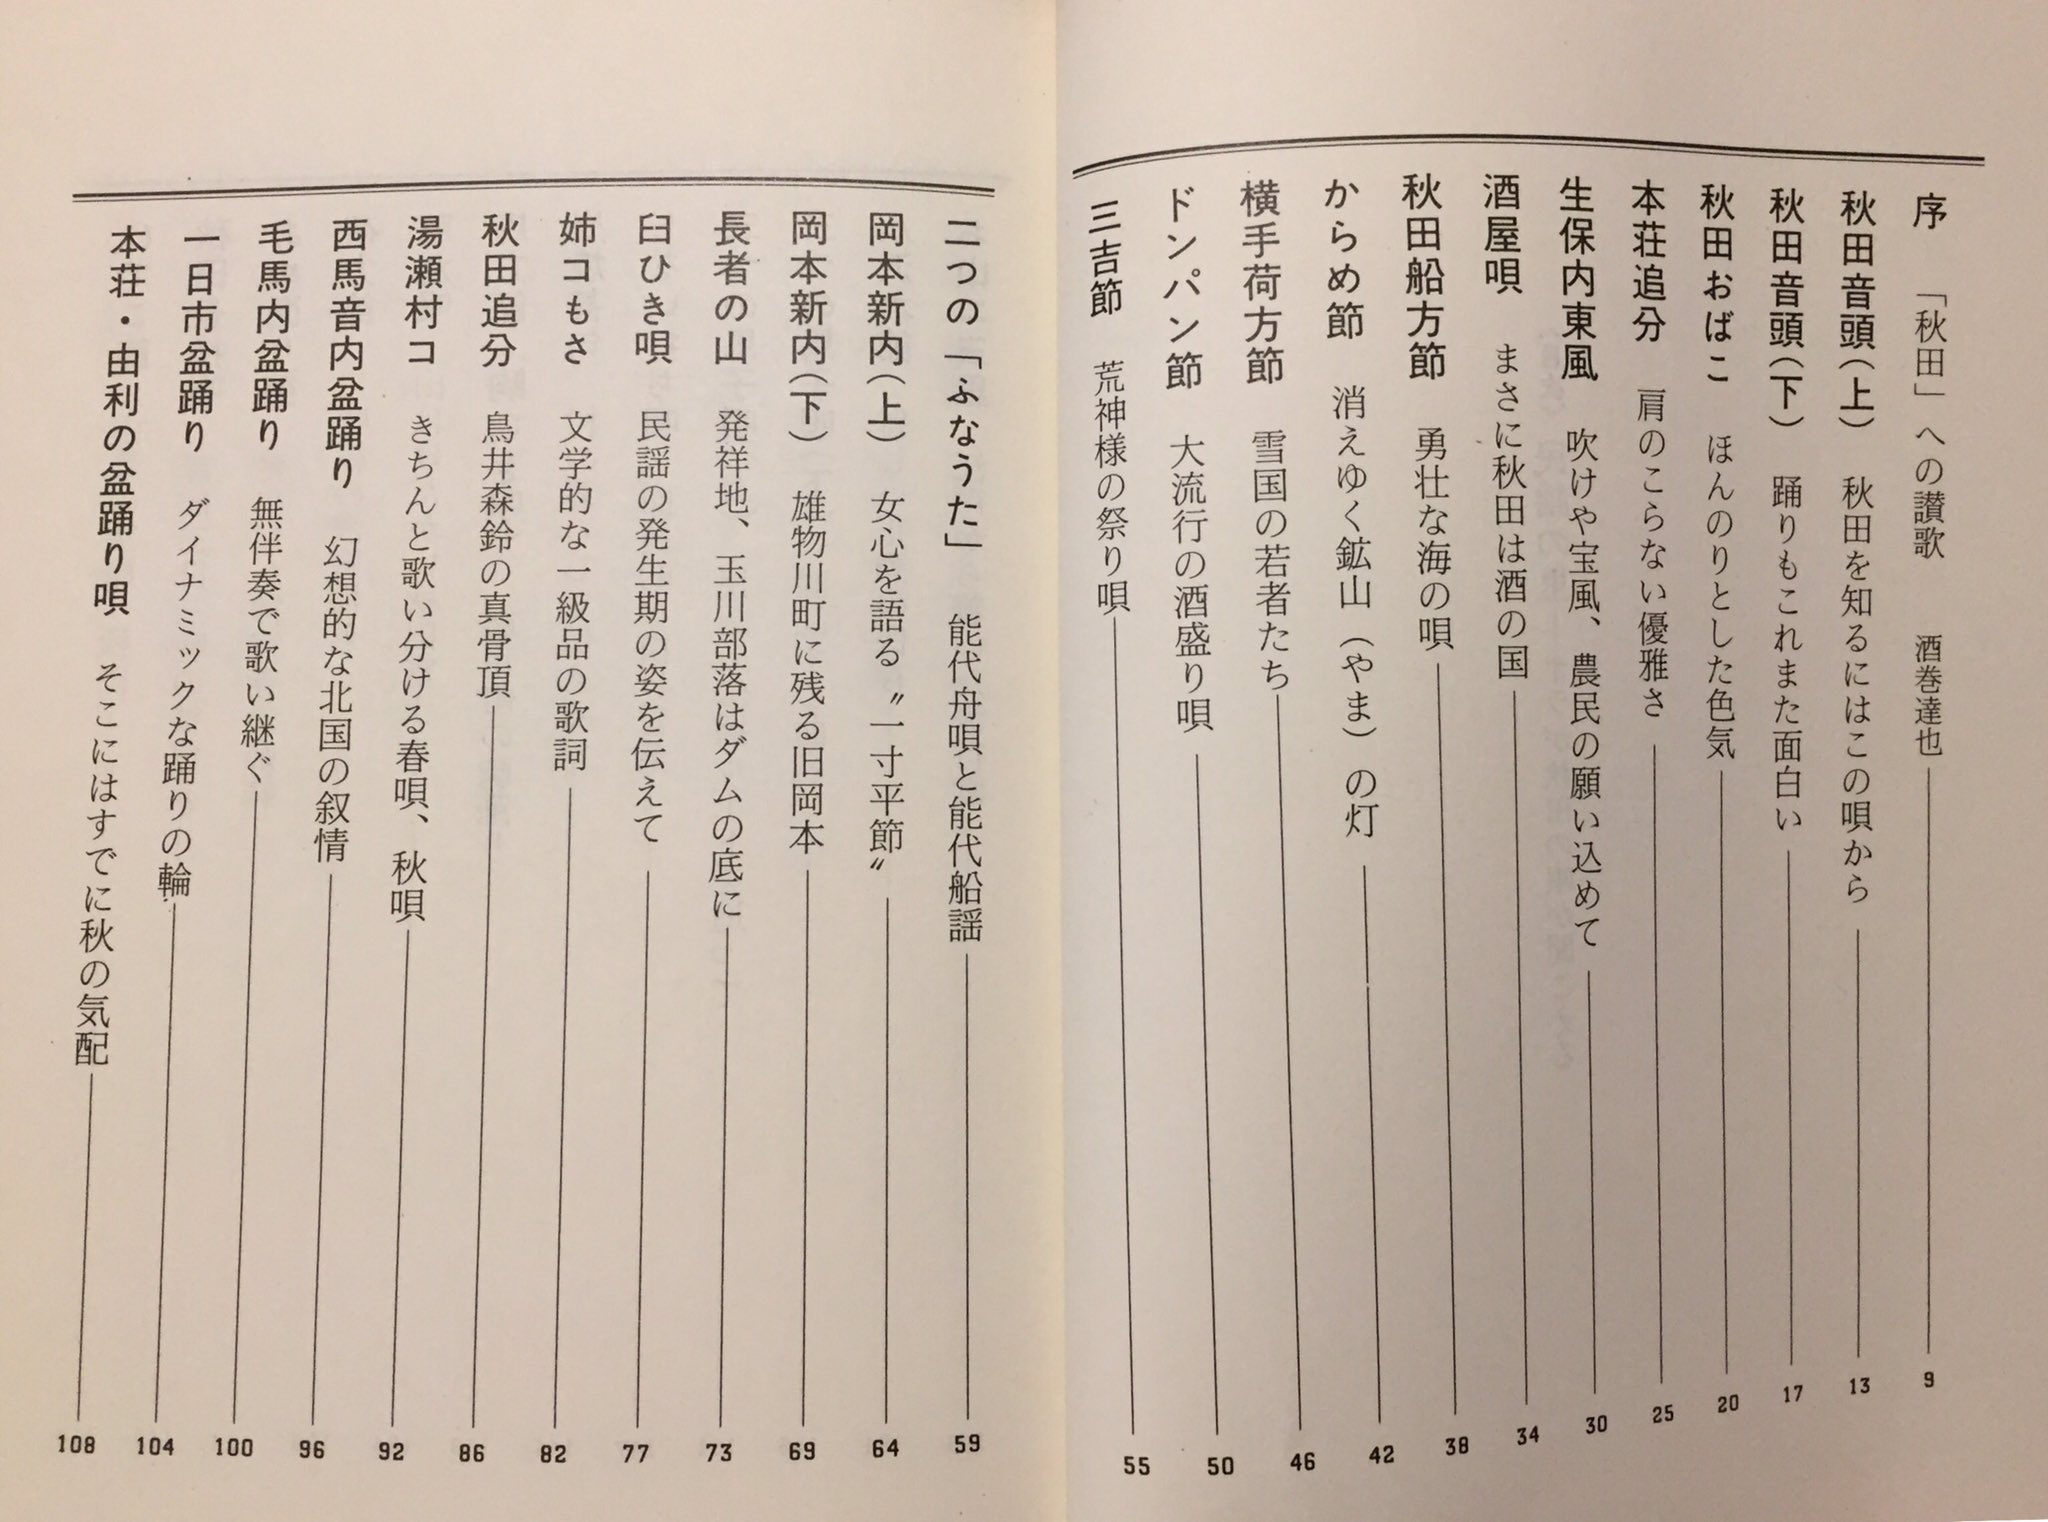 序　「秋田」への讃歌　　酒巻達也　9
秋田音頭（上）　秋田を知るにはこの唄から　13
秋田音頭（下）　踊りもこれまた面白い　17
秋田おばこ　ほんのりとした色気　20
本荘追分　肩のこらない優雅さ　25
生保内東風　吹けや宝風、農民の願い込めて　30
酒屋唄　まさに秋田は酒の国　34
秋田船方節　勇壮な海の唄　38
からめ節　消えゆく鉱山（やま）の灯　42
横手荷方節　雪国の若者たち　46
ドンパン節　大流行の酒盛り唄　50
三吉節　荒神様の祭り唄　55
二つの「ふなうた」　能代舟唄と能代船謡　59
岡本新内（上）　女心を語る〝一寸平節〟　64
岡本新内（下）　雄物川町に残る旧岡本　69
長者の山　発祥地、玉川部落はダムの底に　73
臼ひき唄　民謡の発生期の姿を伝えて　77
姉コもさ　文学的な一級品の歌詞　82
秋田追分　鳥井森鈴の真骨頂　86
湯瀬村コ　きちんと歌い分ける春唄、秋唄　92
西馬音内盆踊り　幻想的な北国の叙情　96
毛馬内盆踊り　無伴奏で歌い継ぐ　100
一日市盆踊り　ダイナミックな踊りの輪　104
本荘・由利の盆踊り唄　そこにはすでに秋の気配　108